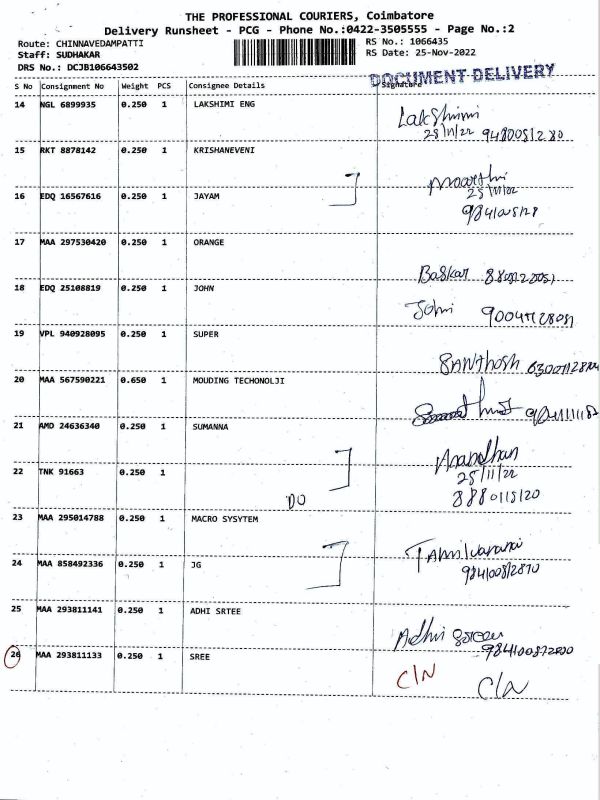 THE PROFESSIONAL COURIERS, Coimbatore
Delivery Runsheet - PCG - Phone No.:0422-3505555 - Page No.:2
Route: CHINNAVEDAMPATTI
RS No.: 1066435
Staff: SUDHAKAR
RS Date: 25-Nov-2022
DRS No.: DCJB106643502
DOCUMENT DELIVERY
S No Consignment No Weight PCS Consignee Details Signature
14 NGL 6899935 0.250 1 LAKSHIMI ENG
Lakshimi
25/11/22
15 RKT 8878142 0.250 1 KRISHANEVENI
25/11/22
16 EDQ 16567616 0.250 1 JAYAM
17 MAA 297530420 0.250 1 ORANGE
Baskar
18 EDQ 25108819 0.250 1 JOHN
19 VPL 940928095 0.250 1 SUPER
SANTHOSH
20 MAA 567590221 0.650 1 MOUDING TECHONOLJI
21 AMD 24636340 0.250 1 SUMANNA
25/11/22
22 TNK 91663 0.250 1
DO
23 MAA 295014788 0.250 1 MACRO SYSYTEM
24 MAA 858492336 0.250 1 JG
25 MAA 293811141 0.250 1 ADHI SRTEE
Adhi
26 MAA 293811133 0.250 1 SREE
C/N C/N